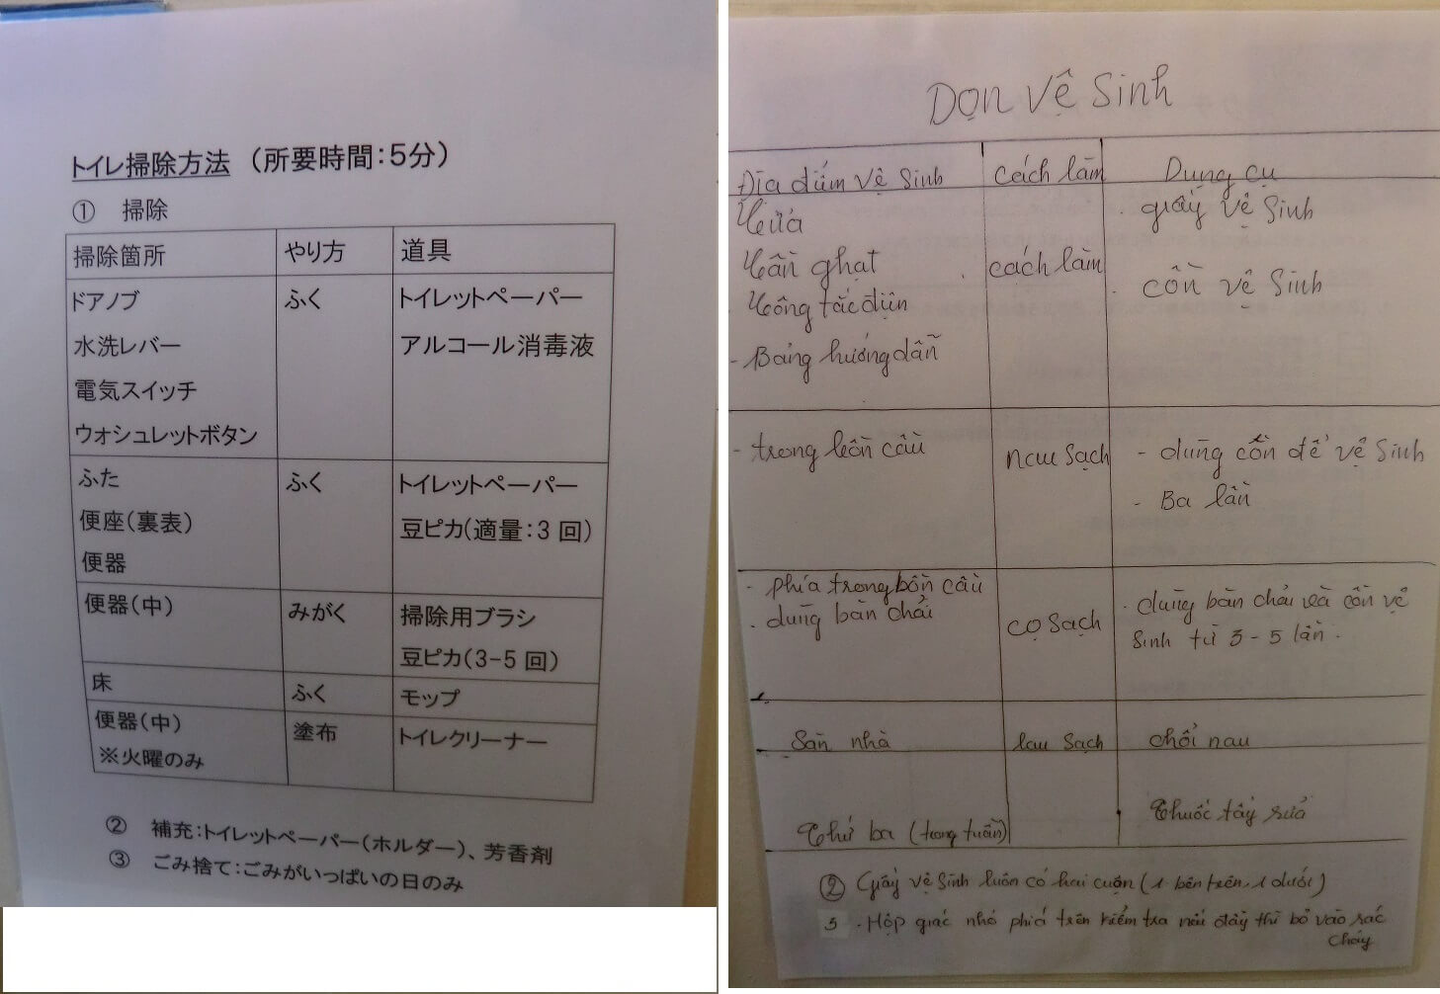 トイレ掃除方法 （所要時間：5分）
① 掃除
掃除箇所 やり方 道具
ドアノブ ふく トイレットペーパー
水洗レバー アルコール消毒液
電気スイッチ
ウォシュレットボタン
ふた ふく トイレットペーパー
便座（裏表） 豆ピカ（適量：3 回）
便器
便器（中） みがく 掃除用ブラシ
豆ピカ（3-5 回）
床 ふく モップ
便器（中） 塗布 トイレクリーナー
※火曜のみ
② 補充：トイレットペーパー（ホルダー）、芳香剤
③ ごみ捨て：ごみがいっぱいの日のみ
Dọn vệ sinh
Địa điểm vệ sinh cách làm Dụng cụ
cửa giấy vệ sinh
cần ghạt cách làm cồn vệ sinh
công tắc điện
- Bảng hướng dẫn
- trong bồn cầu nau sạch - dùng cồn để vệ sinh
- Ba lần
- phía trong bồn cầu
- dùng bàn chải cọ sạch - dùng bàn chải và cồn vệ
sinh từ 3 - 5 lần.
Sàn nhà lau sạch chổi nau
Thuốc tẩy rửa
Thứ ba (trong tuần)
② Giấy vệ sinh luôn có hai cuộn (1 bên trên, 1 dưới)
3 . Hộp giác nhỏ phiá trên kiểm tra nếu đầy thì bỏ vào rác
cháy